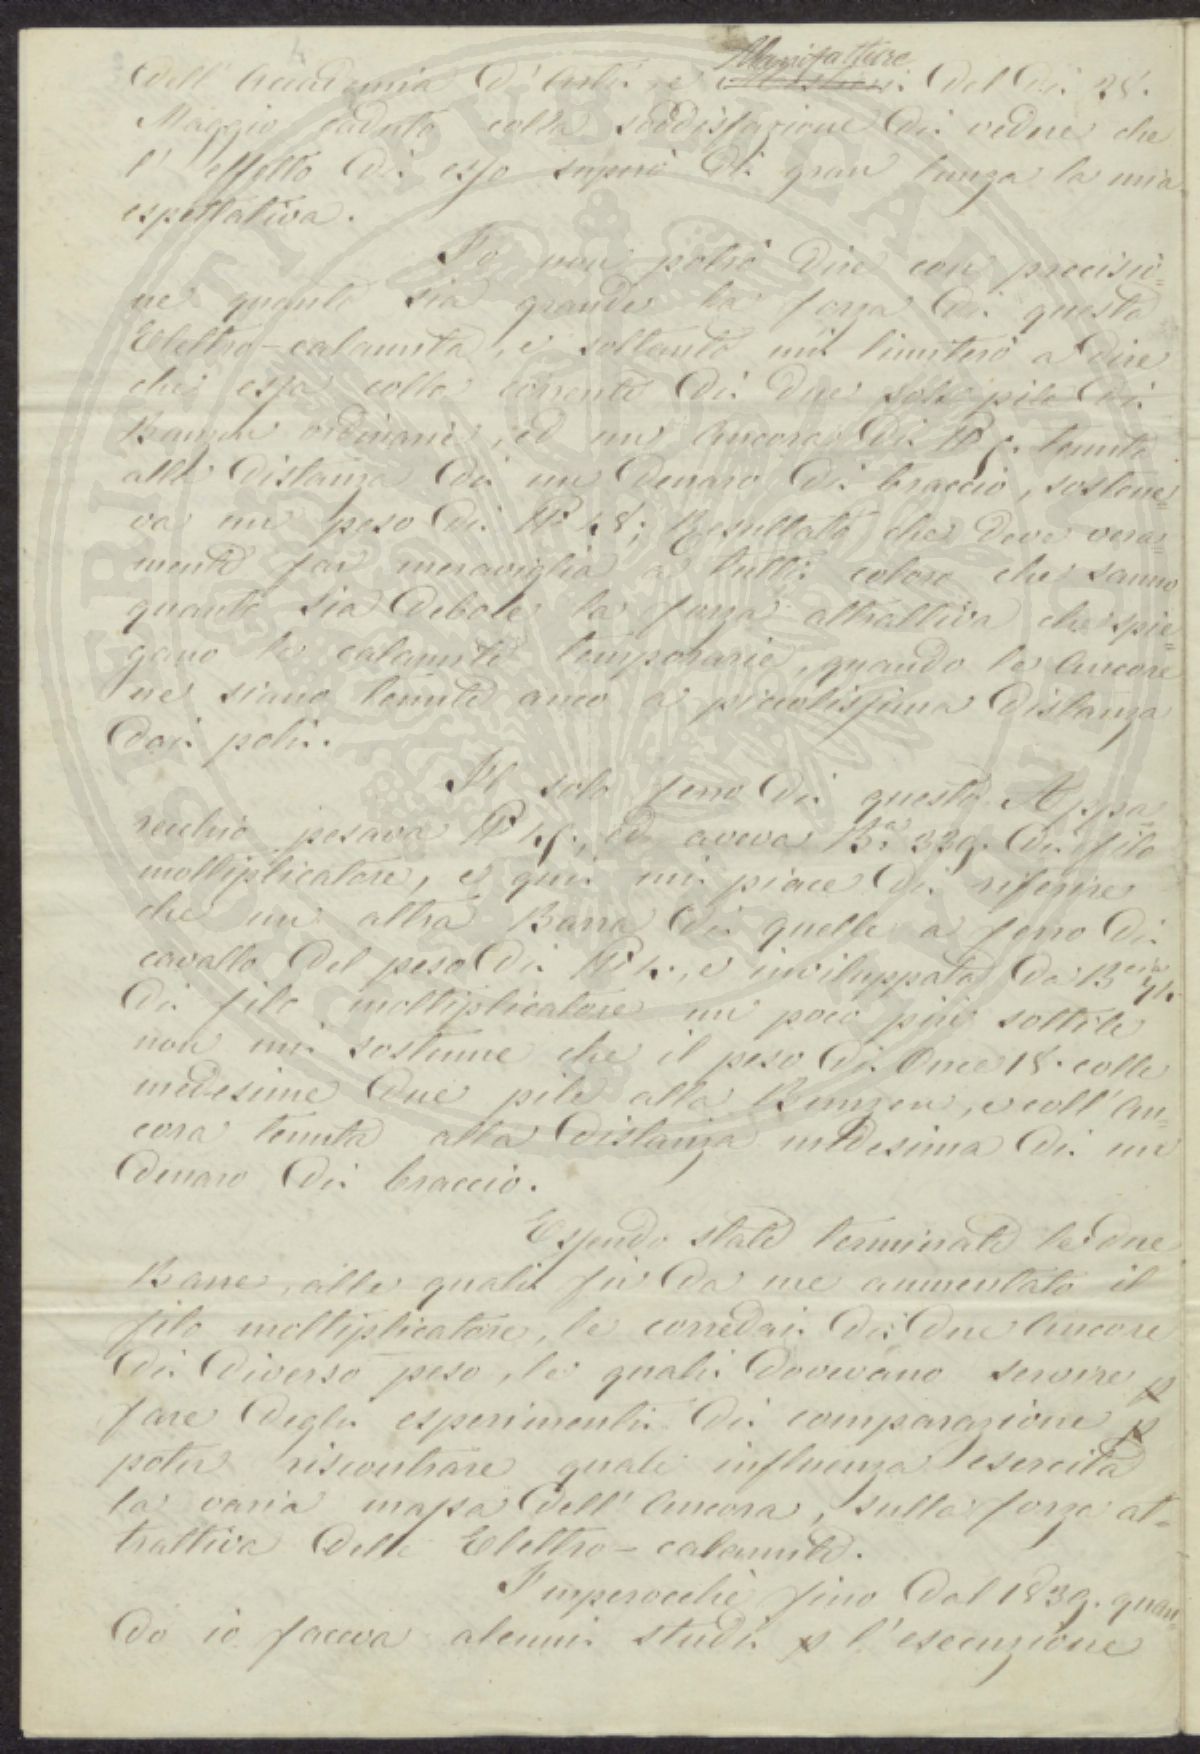 Dell' Accademia d'Arti, e Manifatture del dì 28.
Maggio caduto colla soddisfazione di vedere che
l'effetto di esse superò di gran lunga la mia
espettativa.
Io non potrò dire con precisio=
ne quanto sia grande la forza di questa
Elettro-calamita, e soltanto mi limiterò a dire
che essa colla corrente di due sole pile di
Bunzen ordinarie, ed un' Ancora di tenuta
alla distanza di un denaro di braccio, sostene=
va un peso di 18; Resultato che deve vera=
mente far meraviglia a tutti coloro che sanno
quanto sia debole la forza attrattiva che spie=
gano le calamite temporarie, quando le Ancore
ne siano tenute anco a piccolissima distanza
dai poli.
Il solo ferro di questo Appa=
recchio pesava ed aveva B.a 339. di filo
moltiplicatore, e qui mi piace di riferire
che un' altra Barra di quelle a ferro di
cavallo del peso di e inviluppata da B.cia
di filo moltiplicatore un poco più sottile
non mi sostenne che il peso di Once 18. colle
medesime due pile alla Bunzen, e coll' An=
cora tenuta alla distanza medesima di un
denaro di braccio.
Essendo state terminate le due
Barre, alle quali fu da me aumentato il
filo moltiplicatore, le corredai di due Ancore
di diverso peso, le quali dovevano servire p
fare degli esperimenti di comparazione p
poter riscontrare quale influenza esercita
la varia massa dell' Ancora, sulla forza at=
trattiva delle Elettro-calamite.
Imperocchè fino dal 1839. quan=
do io faceva alcuni studi p l'esecuzione